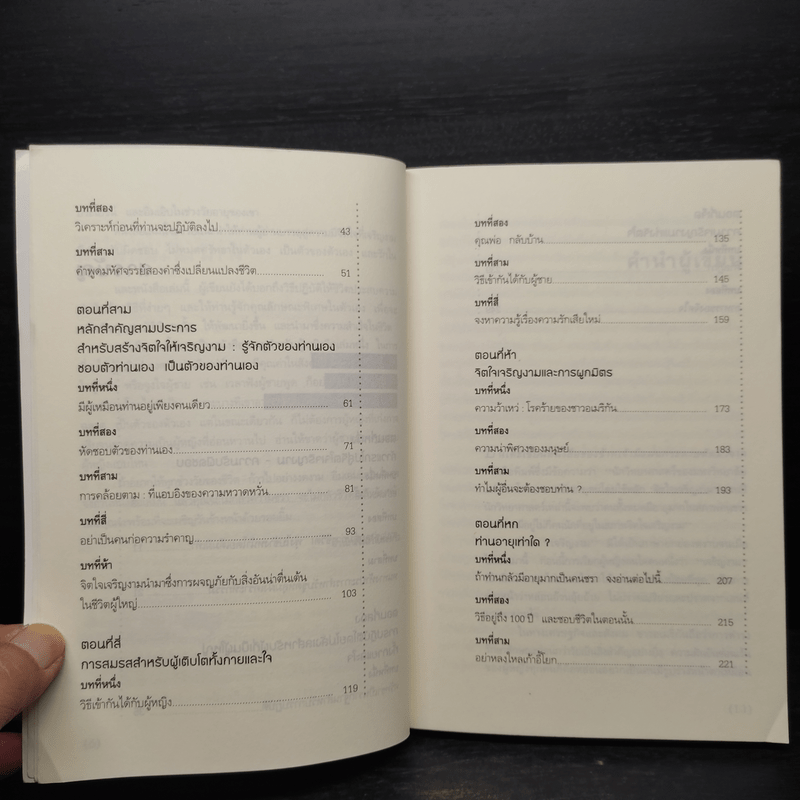 บทที่สอง
วิเคราะห์ก่อนที่ท่านจะปฏิบัติลงไป 43
บทที่สาม
คำพูดมหัศจรรย์สองคำซึ่งเปลี่ยนแปลงชีวิต 51
ตอนที่สาม
หลักสำคัญสามประการ
สำหรับสร้างจิตใจให้เจริญงาม : รู้จักตัวของท่านเอง
ชอบตัวท่านเอง เป็นตัวของท่านเอง
บทที่หนึ่ง
มีผู้เหมือนท่านอยู่เพียงคนเดียว 61
บทที่สอง
หัดชอบตัวของท่านเอง 71
บทที่สาม
การคล้อยตาม : ที่แอบอิงของความหวาดหวั่น 81
บทที่สี่
อย่าเป็นคนก่อความรำคาญ 93
บทที่ห้า
จิตใจเจริญงามนำมาซึ่งการผจญภัยกับสิ่งอันน่าตื่นเต้น
ในชีวิตผู้ใหญ่ 103
ตอนที่สี่
การสมรสสำหรับผู้เติบโตทั้งกายและใจ
บทที่หนึ่ง
วิธีเข้ากันได้กับผู้หญิง 119
บทที่สอง
คุณพ่อ กลับบ้าน 135
บทที่สาม
วิธีเข้ากันได้กับผู้ชาย 145
บทที่สี่
จงหาความรู้เรื่องความรักเสียใหม่ 159
ตอนที่ห้า
จิตใจเจริญงามและการผูกมิตร
บทที่หนึ่ง
ความว้าเหว่ : โรคร้ายของชาวอเมริกัน 173
บทที่สอง
ความน่าพิศวงของมนุษย์ 183
บทที่สาม
ทำไมผู้อื่นจะต้องชอบท่าน ? 193
ตอนที่หก
ท่านอายุเท่าใด ?
บทที่หนึ่ง
ถ้าท่านกลัวมีอายุมากเป็นคนชรา จงอ่านต่อไปนี้ 207
บทที่สอง
วิธีอยู่ถึง 100 ปี และชอบชีวิตในตอนนั้น 215
บทที่สาม
อย่าหลงใหลเก้าอี้โยก 221